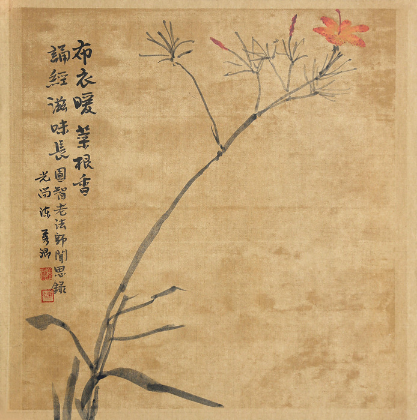 布衣暖菜根香
誦經滋味長圓智老法師聞思錄
光尚法